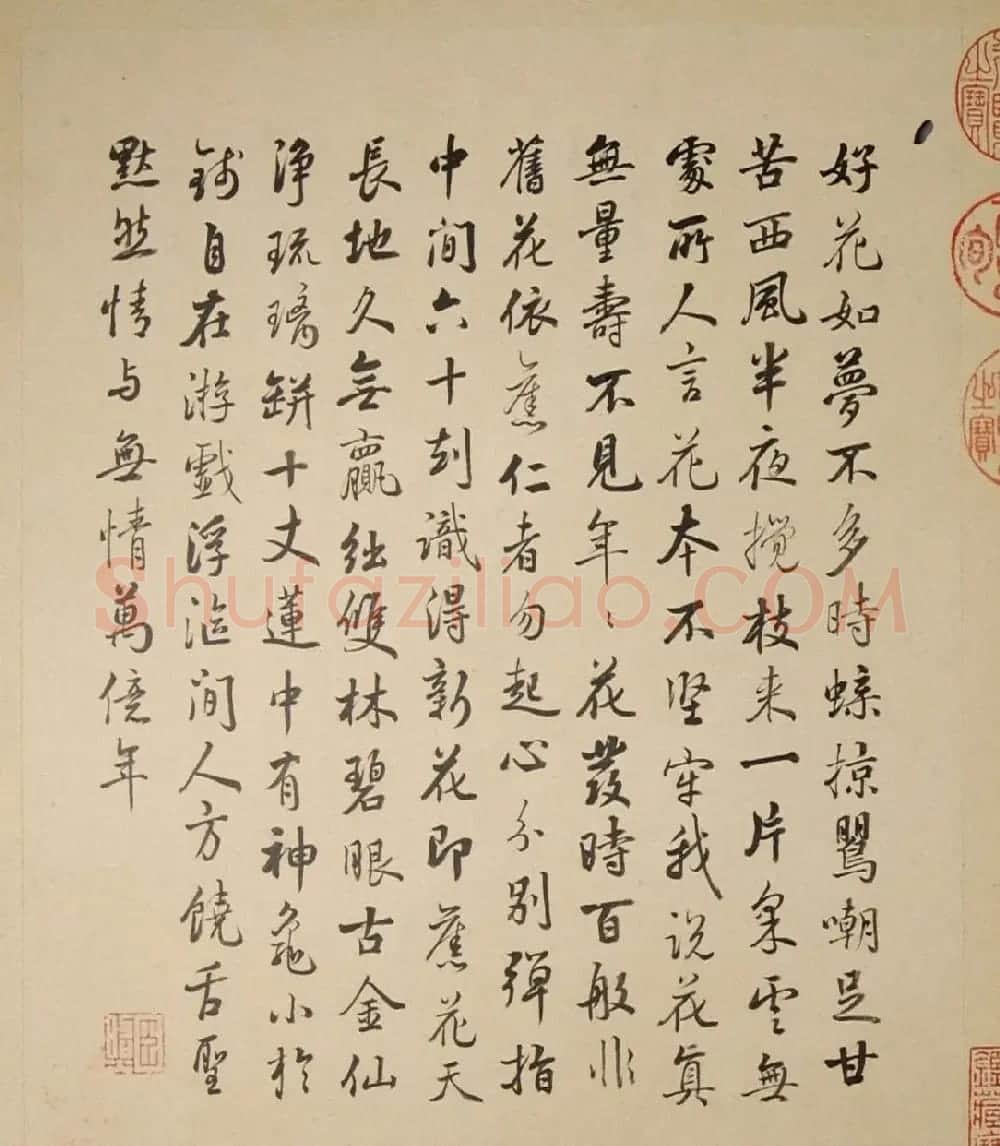 好花如夢不多時蜨掠鸎嘲足甘
苦西風半夜攪枝来一片雲無
處所人言花本不坚牢我説花真
無量壽不見年〻花發時百般非
舊花依舊仁者勿起心分别彈指
中間六十刹識得新花即舊花天
長地久無贏絀雙林碧眼古金仙
浄琉璃缾十丈蓮中有神龜小於
錢自在游戲浮漚間人方饒舌聖
默然情与無情萬億年
Shufaziliao.COM